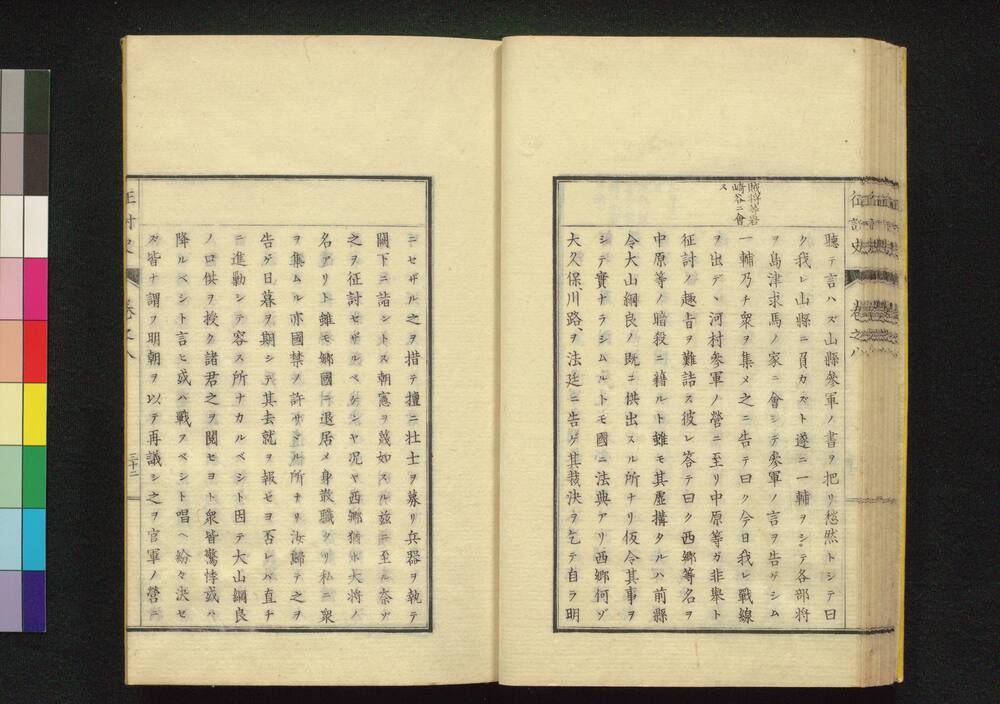 征討史
卷之八
賊將等岩
崎谷ニ會
ス
聽テ言ハズ山縣參軍ノ書ヲ把リ愁然トシテ曰
ク我レ山縣ニ負カズト遂ニ一輔ヲシテ各部將
ヲ島津求馬ノ家ニ會シテ參軍ノ言ヲ告ゲシム
一輔乃チ衆ヲ集メ之ニ告テ曰ク今日我レ戰線
ヲ出デ、河村參軍ノ營ニ至リ中原等ガ非擧ト
征討ノ趣旨ヲ難詰ス彼レ答テ曰ク西郷等名ヲ
中原等ノ暗殺ニ藉ルト雖モ其虛搆タルハ前縣
令大山綱良ノ既ニ供出スル所ナリ假令其事ヲ
シテ實ナラシムルトモ國ニ法典アリ西郷何ゾ
大久保川路、ヲ法廷ニ告ゲ其裁決ヲ乞テ自ラ明
ニセザル之ヲ措テ擅ニ壮士ヲ募リ兵器ヲ執テ
闕下ニ詣シトス朝憲ヲ蔑如スル茲ニ至ル奈ゾ
之ヲ征討セザルベケンヤ况ヤ西郷猶ホ大将ノ
名アリト雖モ郷國ニ退居メ身散職タリ私ニ衆
ヲ集ムル亦國禁ノ許サヾル所ナリ汝歸テ之ヲ
告ゲ日暮ヲ期シテ其去就ヲ報ゼヨ否レバ直チ
ニ進勦シテ容ス所ナカルベシト因テ大山綱良
ノ口供ヲ授ク諸君之ヲ閲セヨト衆皆驚悖或ハ
降ルベシト言ヒ或ハ戰フベシト唱ヘ紛々決セ
ズ皆ナ謂ヲ明朝ヲ以テ再議シ之ヲ官軍ノ營ニ
征討史
卷之八
三十二